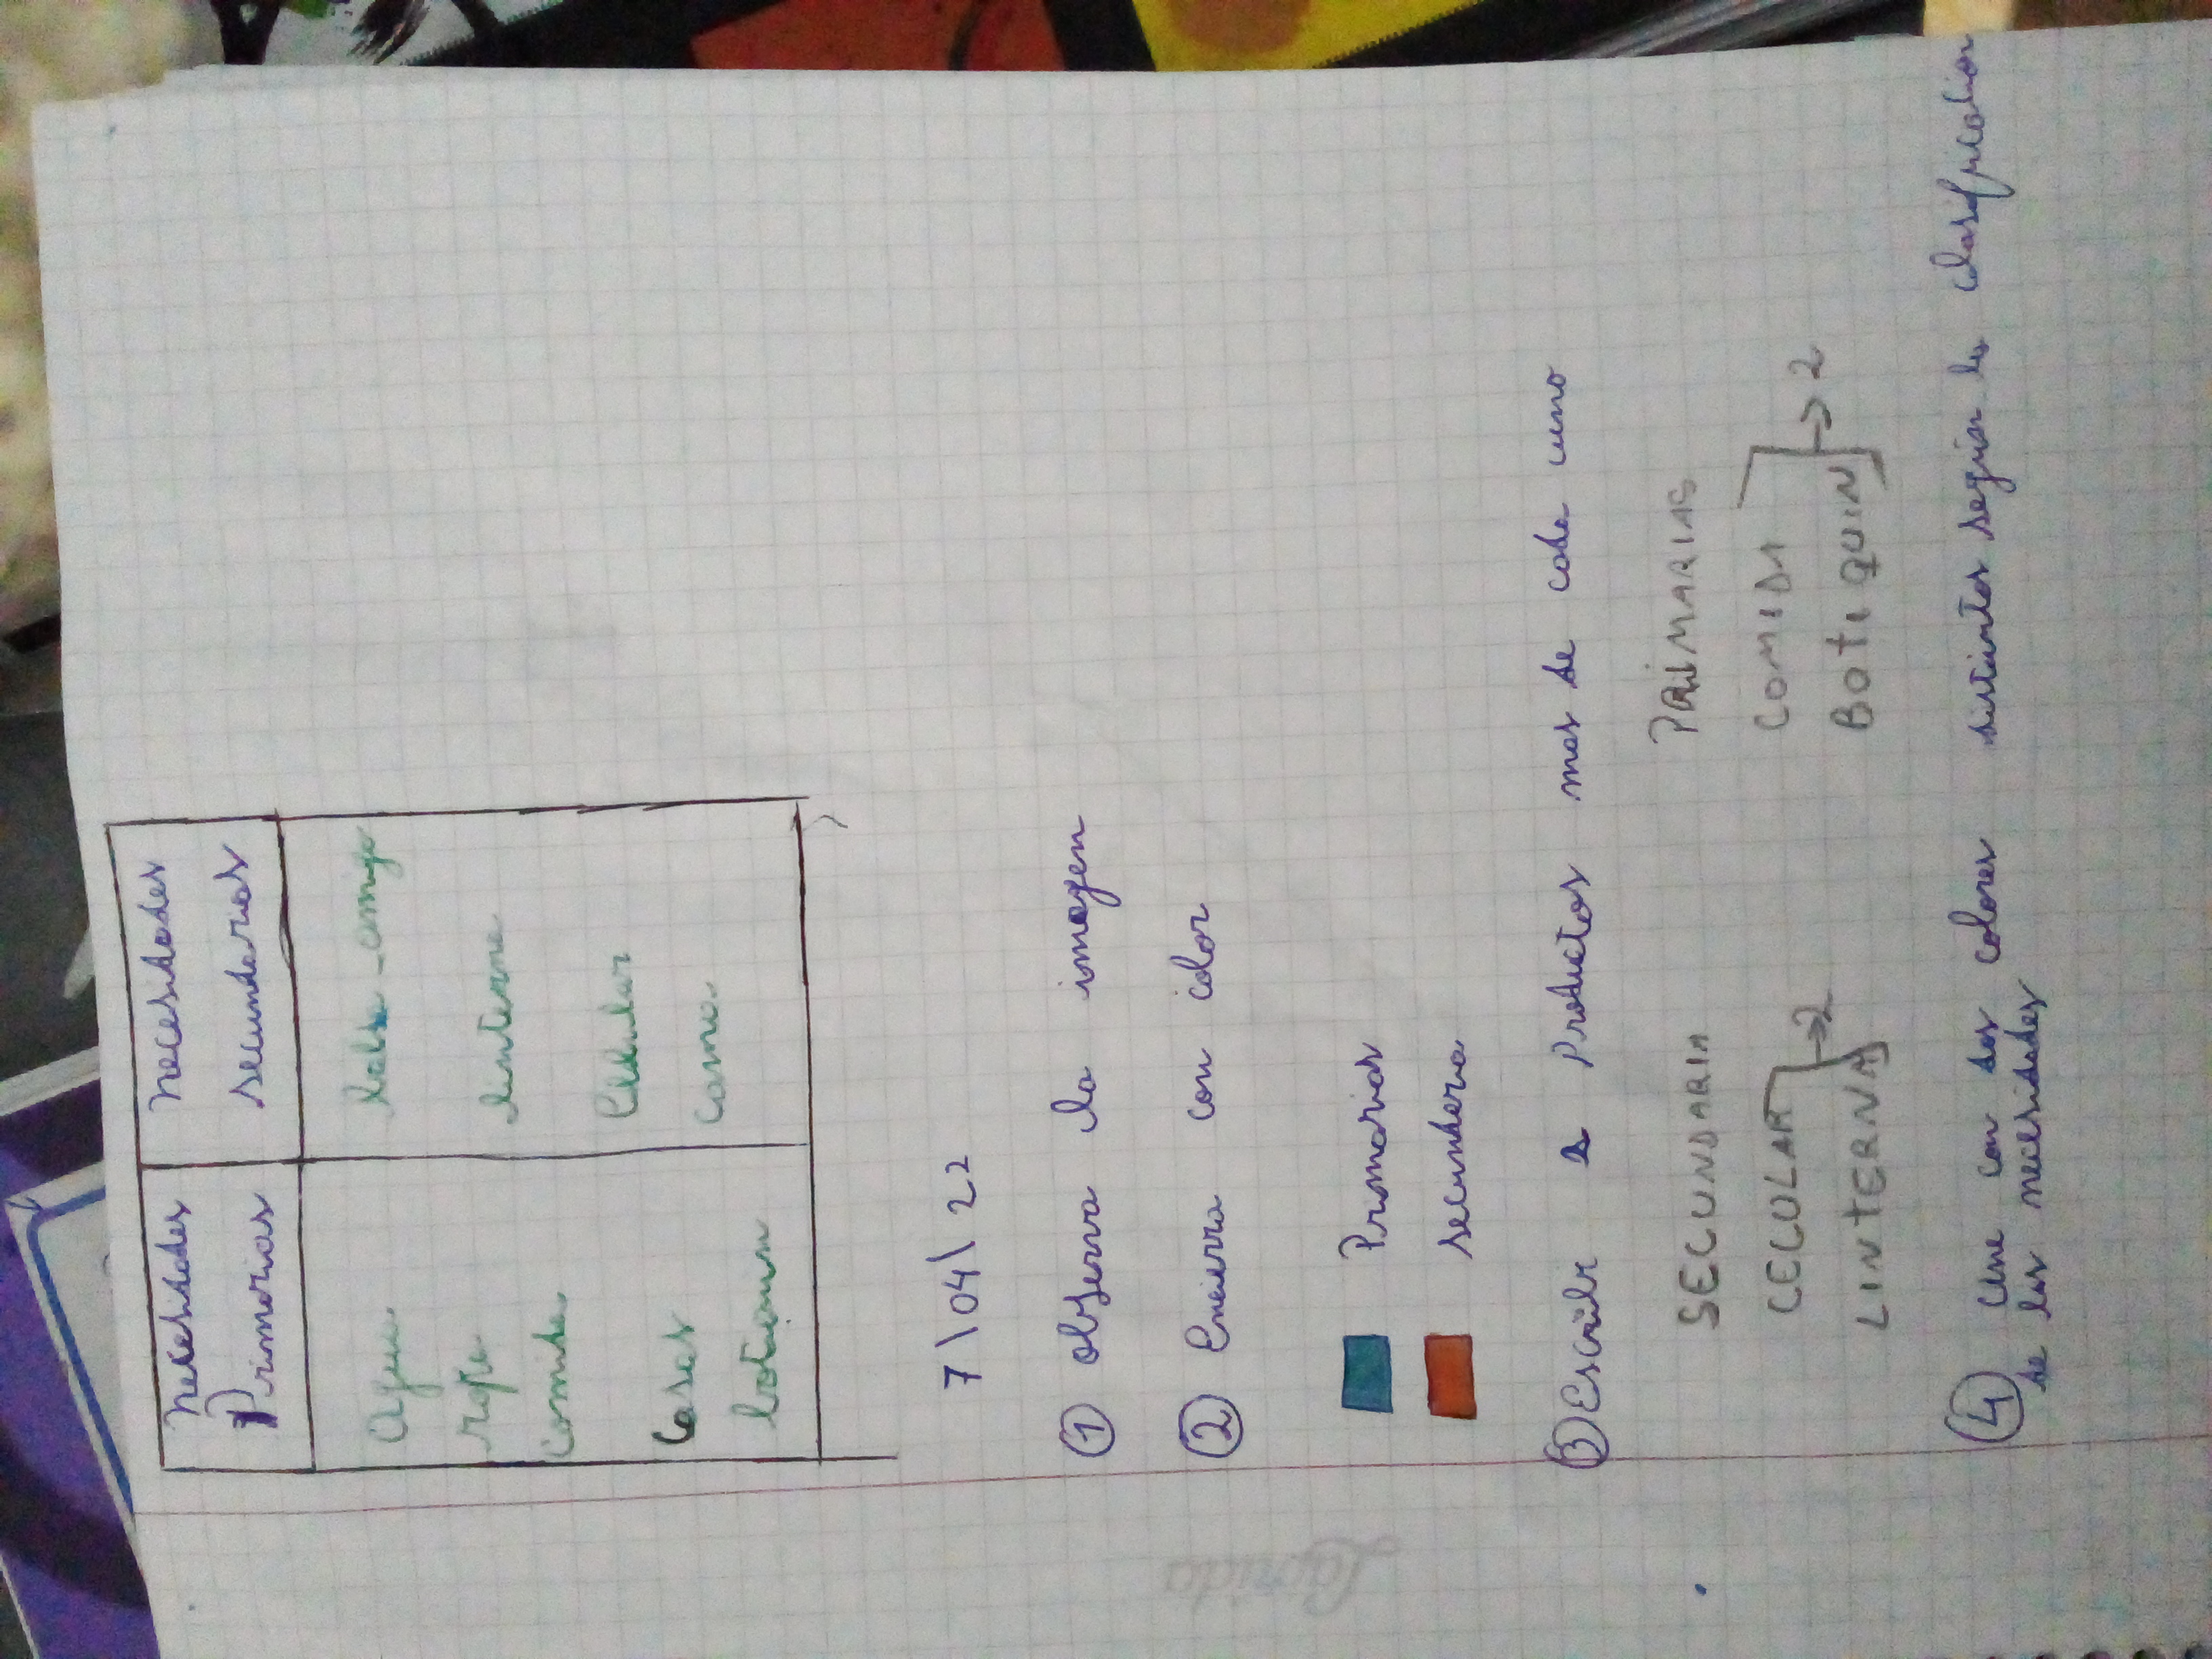 necesidades Primarias
necesidades secunderias
Agua
ropa
comida
Casas
botiquin
linterna
Celular
cama
7\04\22
① observa la imagen
② Encierra con color
Primarias
secundaria
③ Escribe 2 Productos mas de cada uno
SECUNDARIA
CECULAR
LINTERNA →2
PRIMARIAS
COMIDA
BOTIQUIN →2
④ une con dos colores distintos según la clasificación
de las necesidades
Laprida